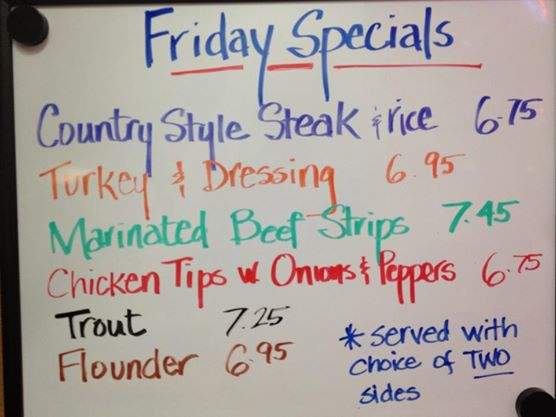 Friday Specials
Country Style Steak & rice 6.75
Turkey & Dressing 6.95
Marinated Beef Strips 7.45
Chicken Tips w Onions & Peppers 6.75
Trout 7.25
Flounder 6.95
* served with
choice of TWO
sides